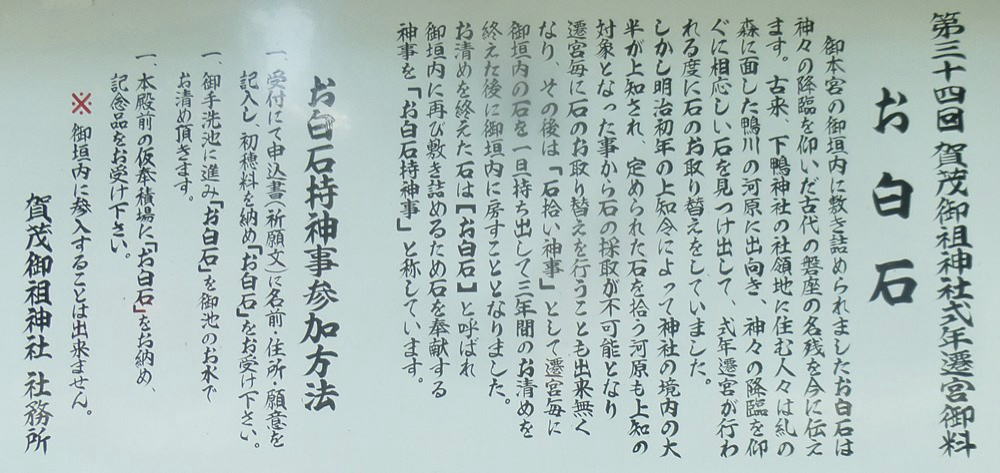 第三十四回 賀茂御祖神社式年遷宮御料
お白石
御本宮の御垣内に敷き詰められましたお白石は
神々の降臨を仰いだ古代の磐座の名残を今に伝え
ます。古来、下鴨神社の社領地に住む人々は糺の
森に面した鴨川の河原に出向き、神々の降臨を仰
ぐに相応しい石を見つけ出して、式年遷宮が行わ
れる度に石のお取り替えをしていました。
しかし明治初年の上知令によって神社の境内の大
半が上知され、定められた石を拾う河原も上知の
対象となった事から石の採取が不可能となり
遷宮毎に石のお取り替えを行うことも出来無く
なり、その後は「石拾い神事」として遷宮毎に
御垣内の石を一旦持ち出して三年間のお清めを
終えた後に御垣内に戻すこととなりました。
お清めを終えた石は【お白石】と呼ばれ
御垣内に再び敷き詰めるため石を奉献する
神事を「お白石持神事」と称しています。
お白石持神事参加方法
一、受付にて申込書(祈願文)に名前・住所・願意を
記入し、初穂料を納め「お白石」をお受け下さい。
一、御手洗池に進み「お白石」を御池のお水で
お清め頂きます。
一、本殿前の仮奉積場に「お白石」をお納め、
記念品をお受け下さい。
※ 御垣内に参入することは出来ません。
賀茂御祖神社 社務所